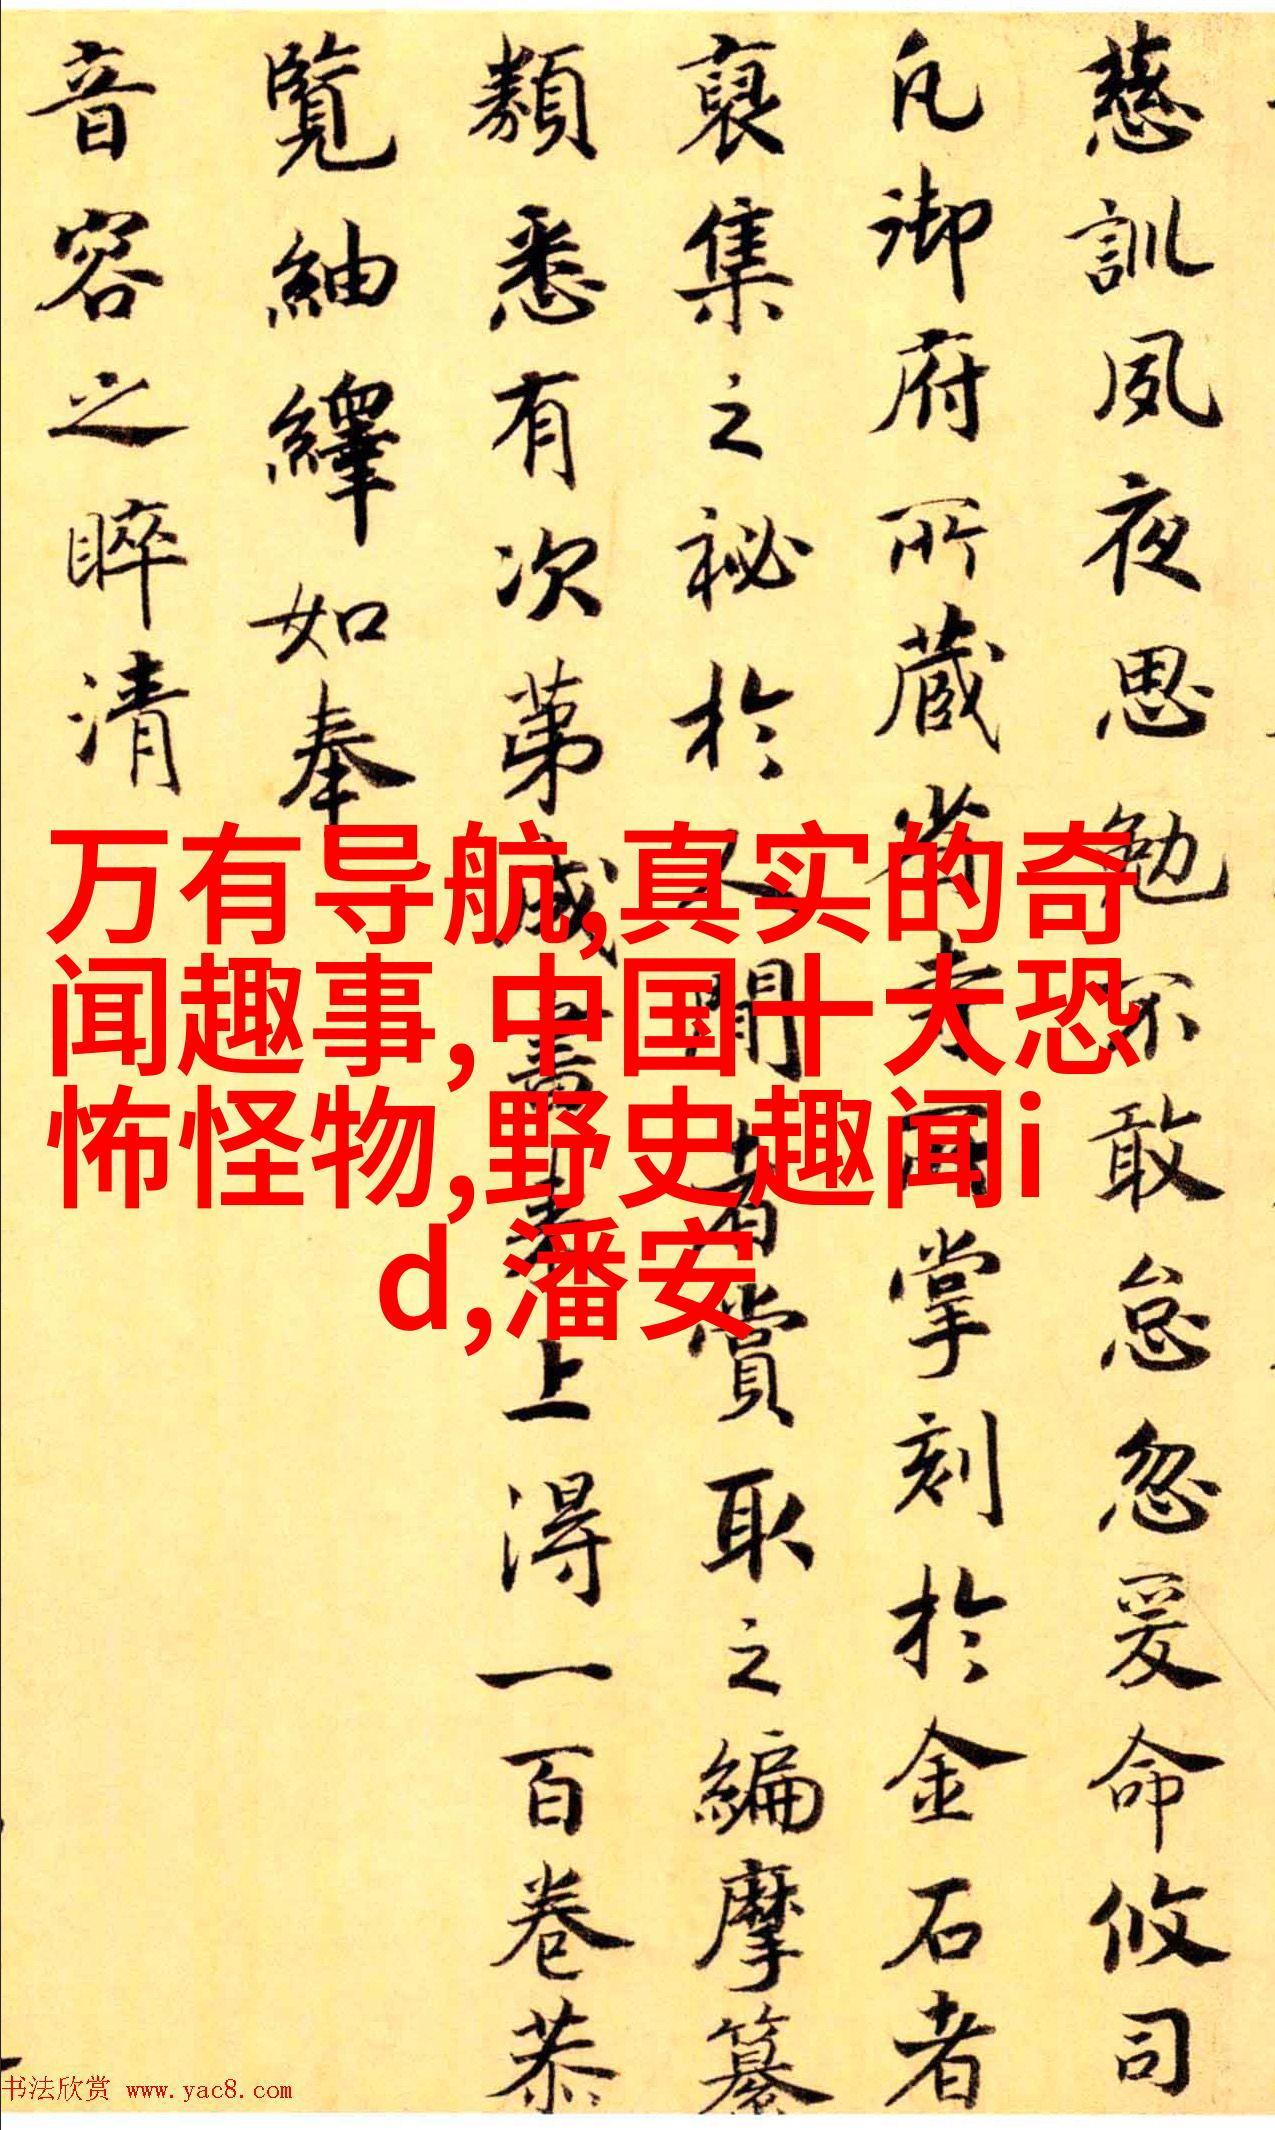 慈訓夙夜思勉不敢怠忽爰命攸司
凡御府所藏
掌刻於金石者
裒集之祕於
賞取之編摩纂
類悉有次第
上得一百卷恭
覽紬繹如奉
音容之睟清
万有导航,真实的奇
闻趣事,中国十大恐
怖怪物,野史趣闻i
d,潘安
书法欣赏 www.yac8.com